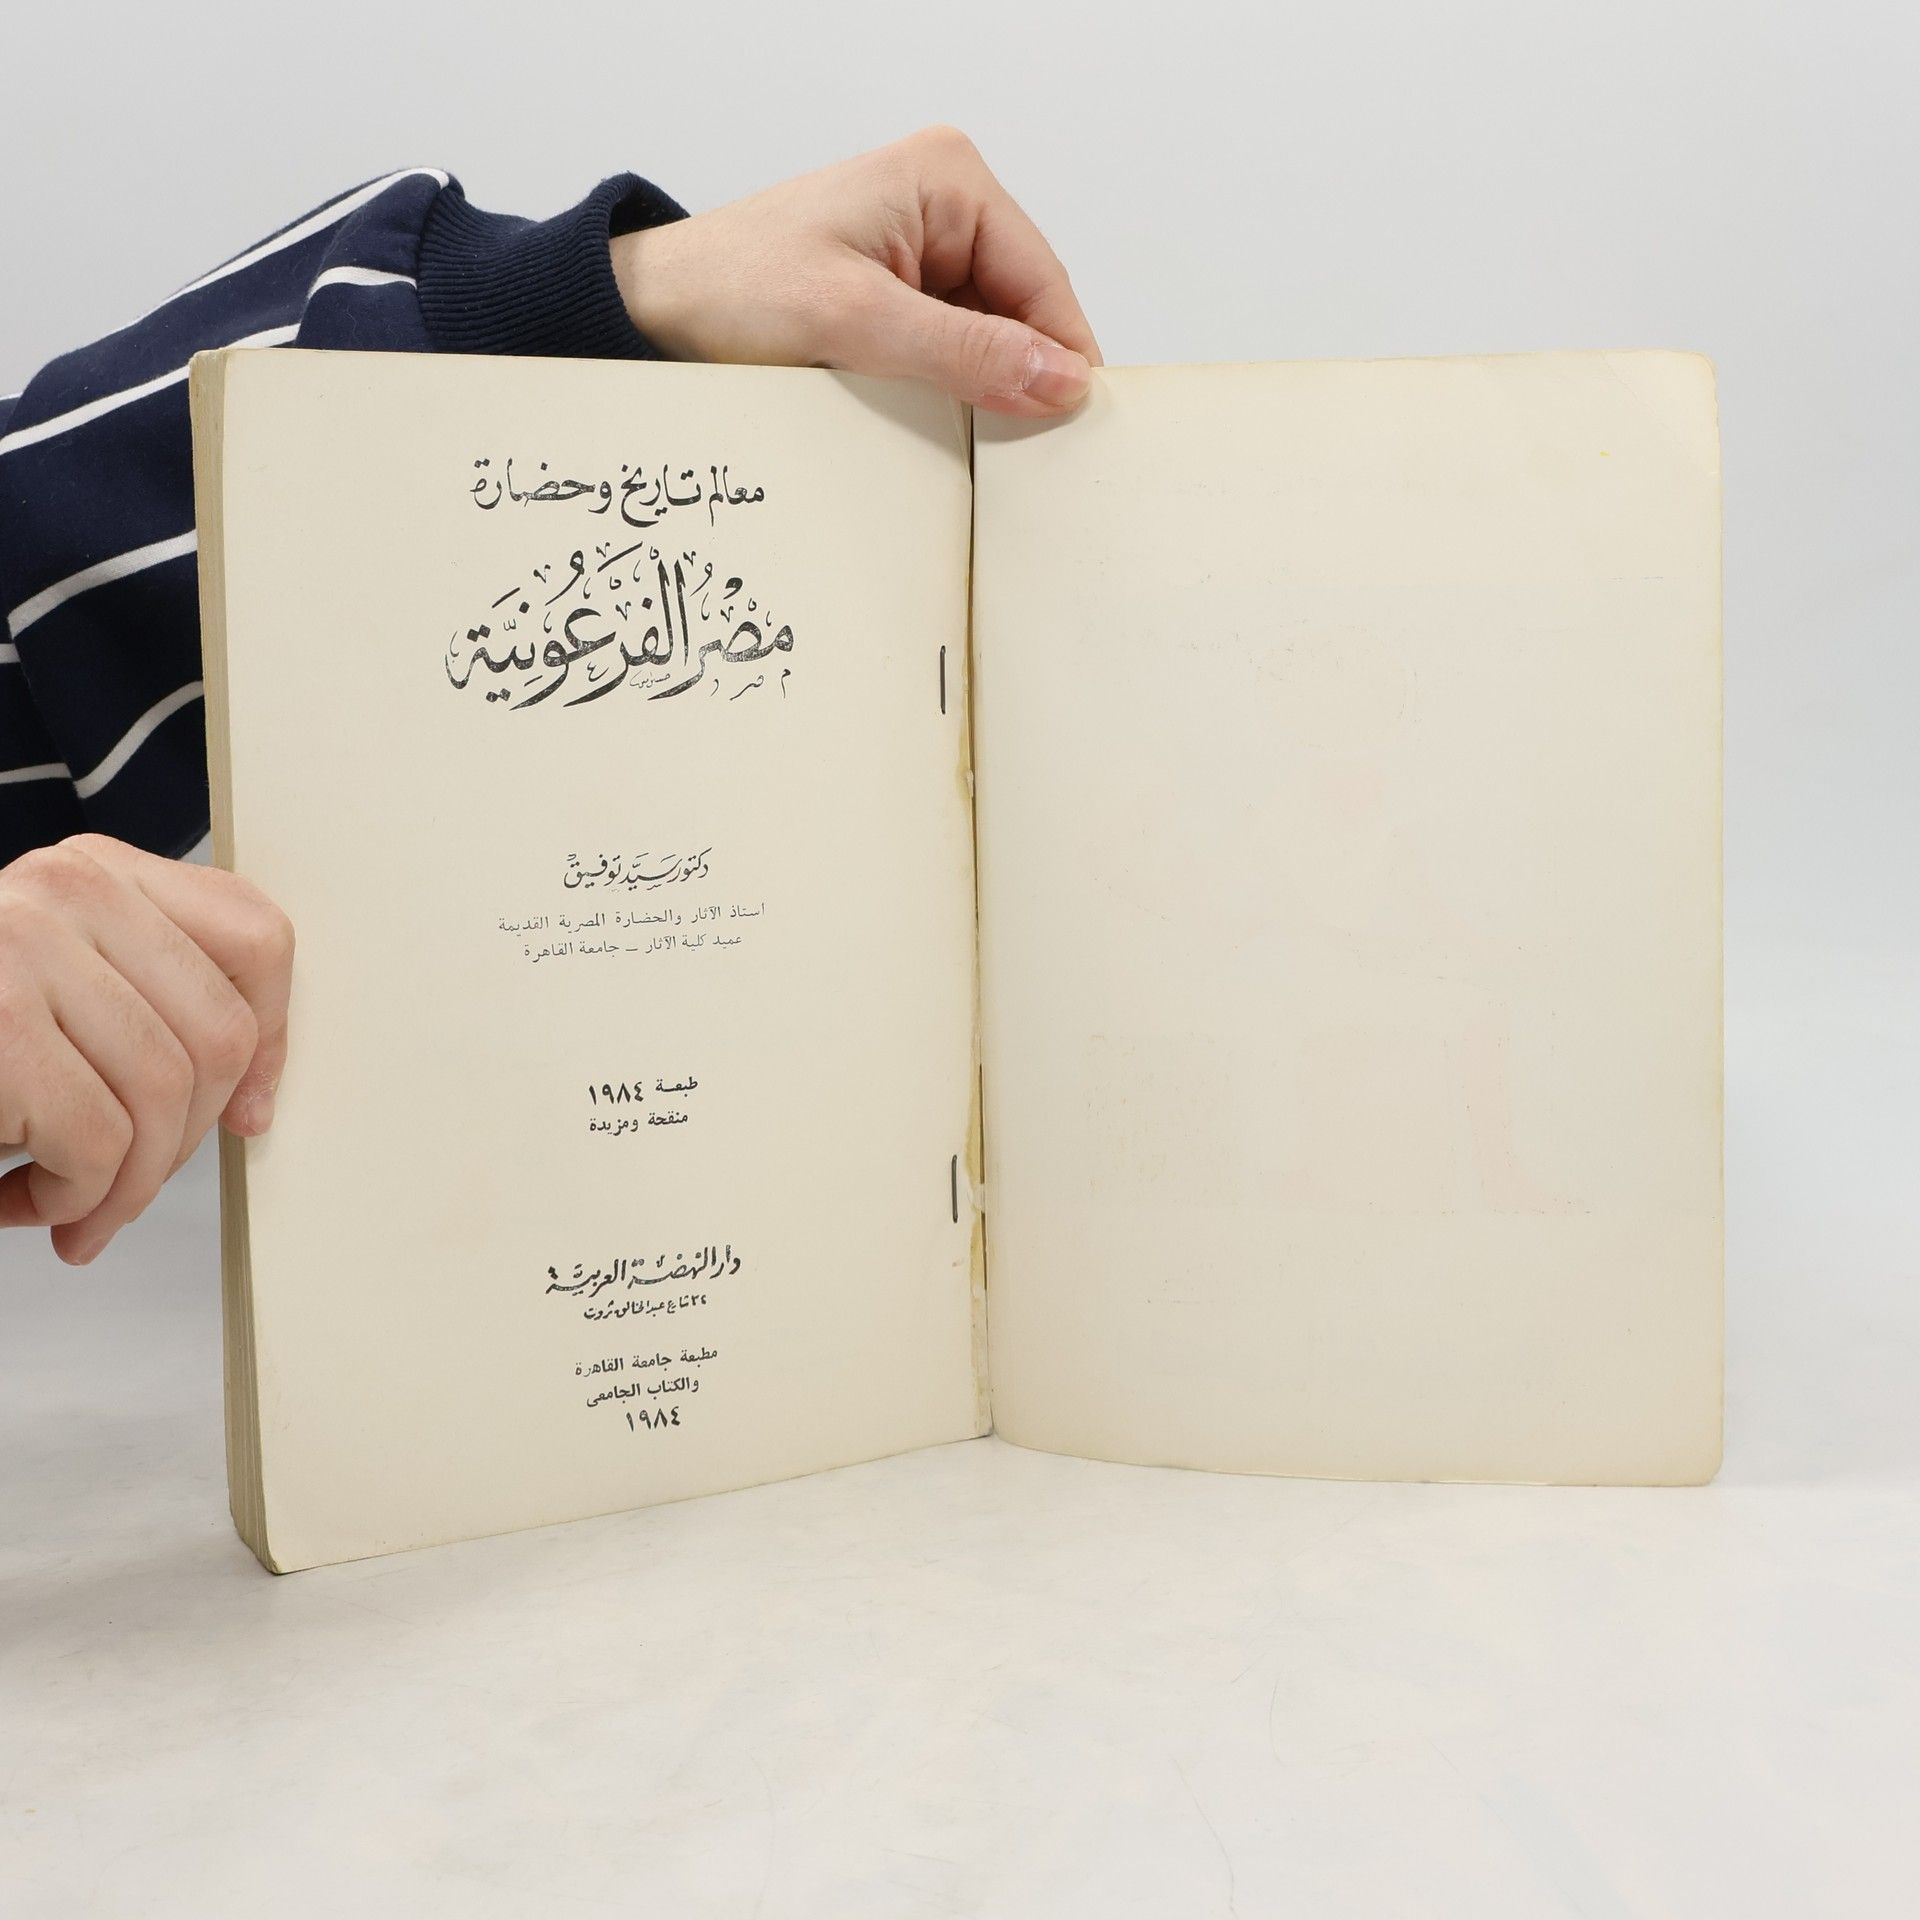 معالم تاريخ وحضارة
مصرُ الفَرعُونيَّة
دكتور سَيَّد توفيق
استاذ الآثار والحضارة المصرية القديمة
عميد كلية الآثار – جامعة القاهرة
طبعة ١٩٨٤
منقحة ومزيدة
دار النهضة العربية
٣٢ شارع عبد الخالق ثروت
مطبعة جامعة القاهرة
والكتاب الجامعى
١٩٨٤